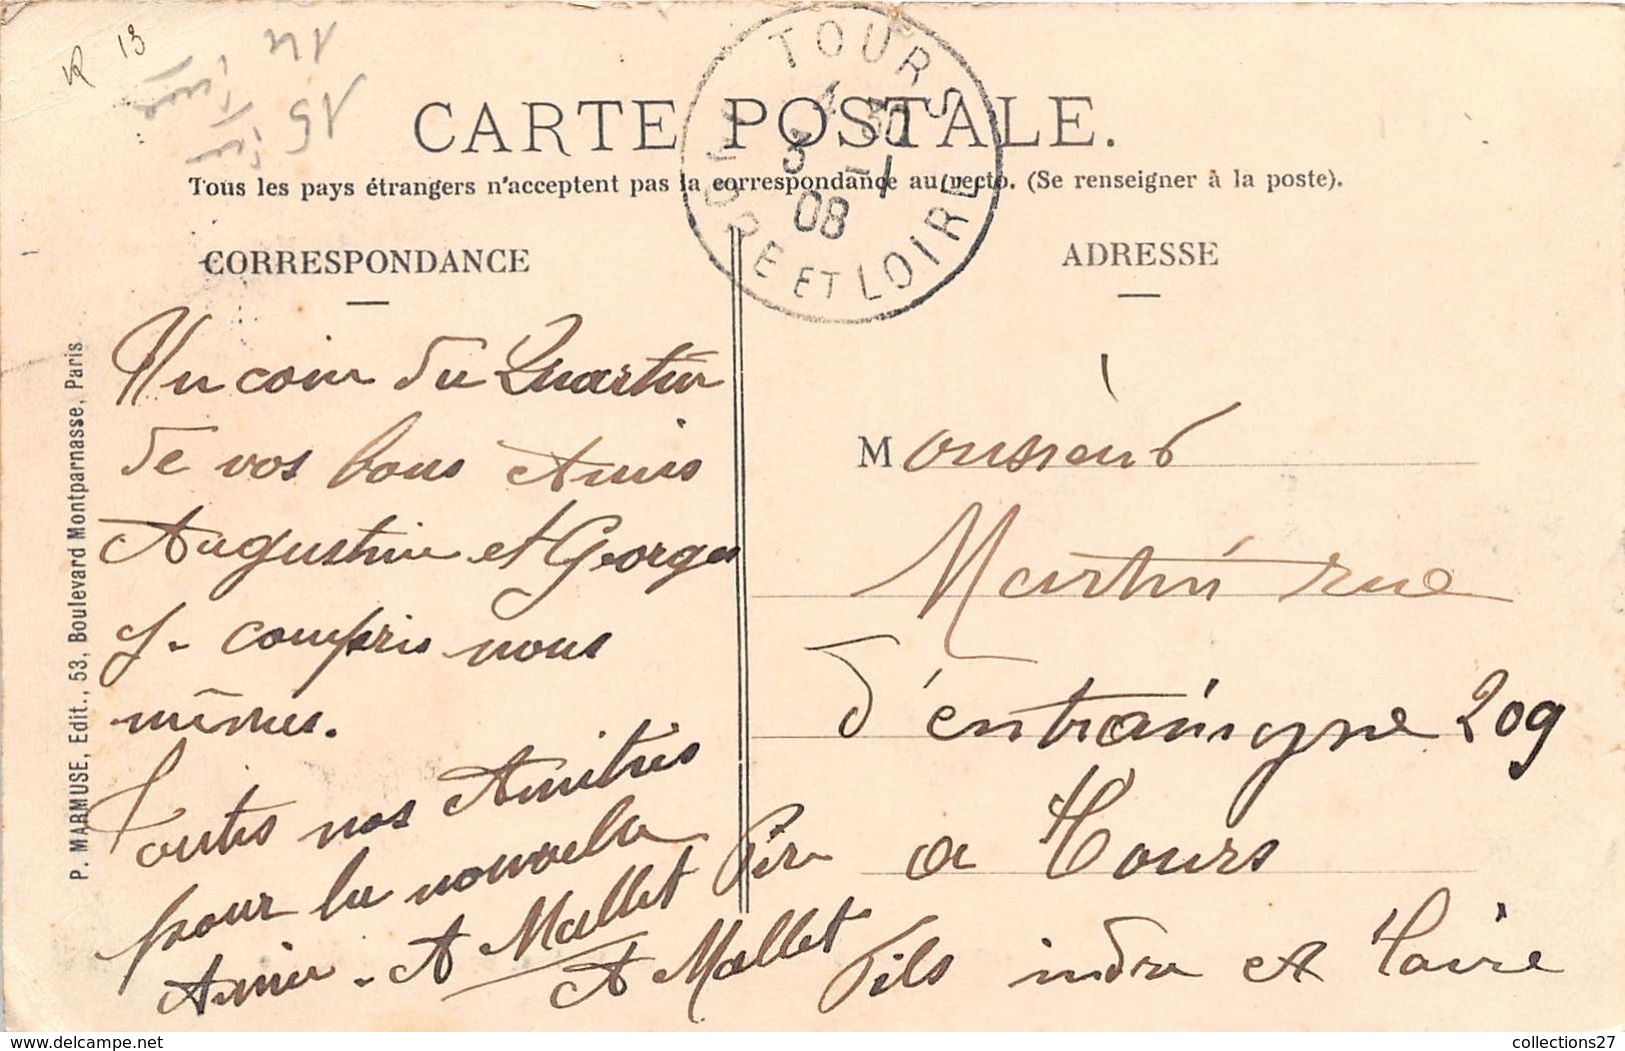 R 13
CARTE POSTALE.
Tous les pays étrangers n'acceptent pas la correspondance au recto. (Se renseigner à la poste).
TOURS
4 30
3 -1
08
INDRE ET LOIRE
CORRESPONDANCE
Un coin du Quartier
de vos bons Amis
Augustine et Georges
y. compris nous
mêmes.
Toutes nos Amitiés
pour la nouvelle
Année. A Mallet Père
A Mallet Fils
ADRESSE
Monsieur
Martin rue
d'entraigne 209
a Tours
indre et Loire
P. MARMUSE, Edit., 53, Boulevard Montparnasse, Paris
www.delcampe.net
collections27